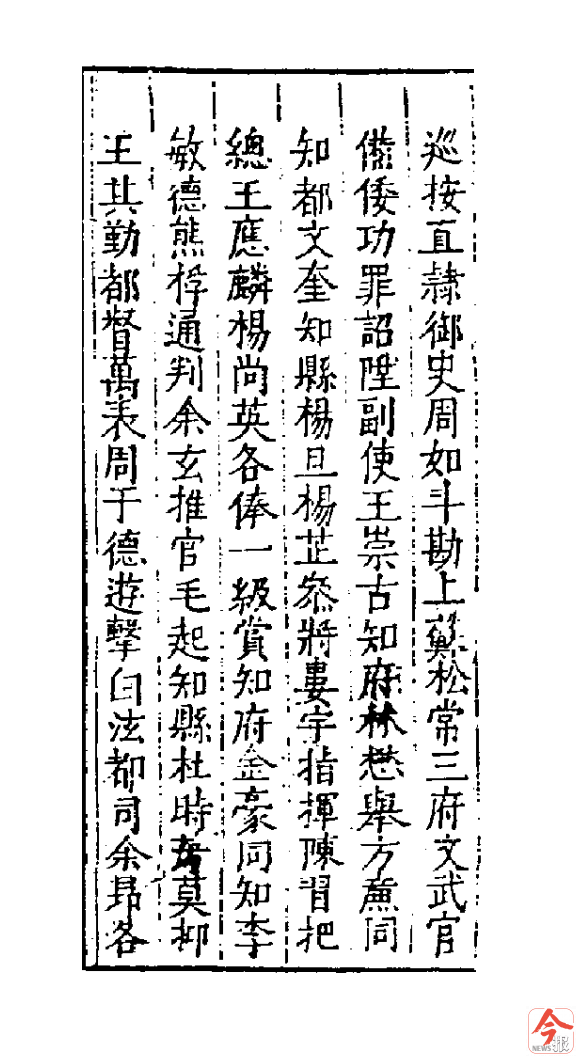 巡按直隷御史周如斗勘上蘇松常三府文武官
備倭功罪詔陞副使王崇古知府林懋舉方薰同
知都文奎知縣楊旦楊芷叅將婁宇指揮陳習把
總王應麟楊尚英各俸一級賞知府金豪同知李
敏德熊桴通判余玄推官毛起知縣杜時莫抑
王其勤都督萬表周于德遊擊白泫都司余昂各
今
NEWS